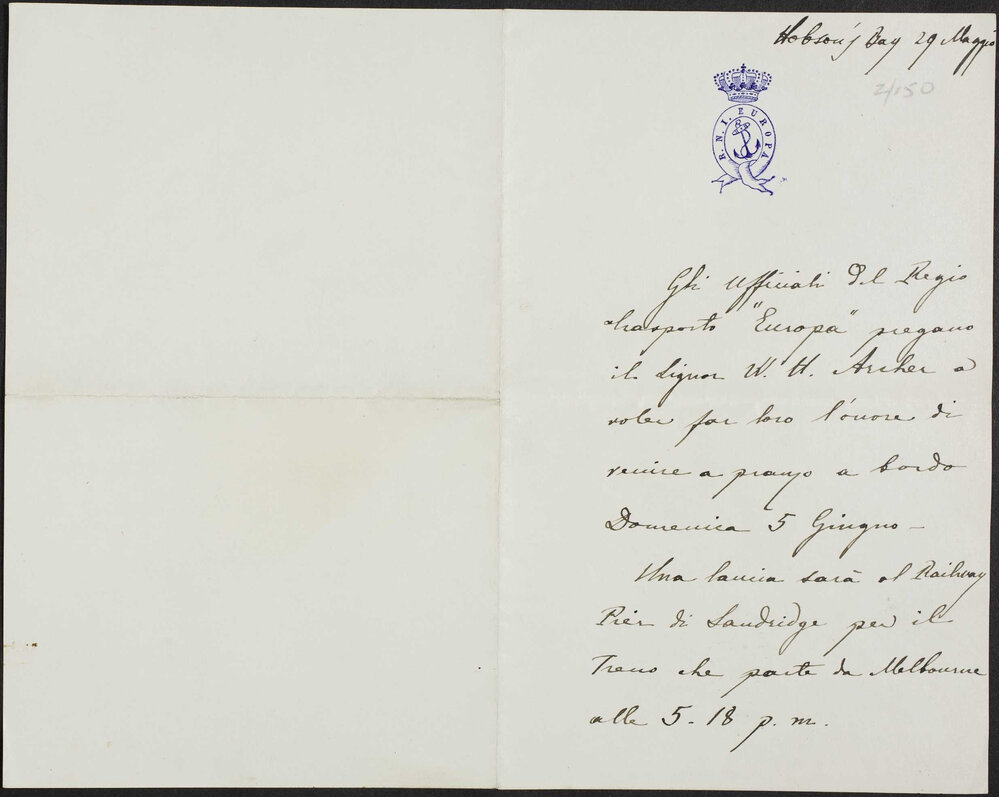 Hobson's Bay 29 Maggio
2/150
R. N. I. EUROPA
Gli Ufficiali del Regio
trasporto "Europa" pregano
il Signor W. H. Archer a
voler far loro l'onore di
venire a pranzo a bordo
Domenica 5 Giugno -
Una lancia sarà al Railway
Pier di Sandridge per il
Treno che parte da Melbourne
alle 5-18 p. m.